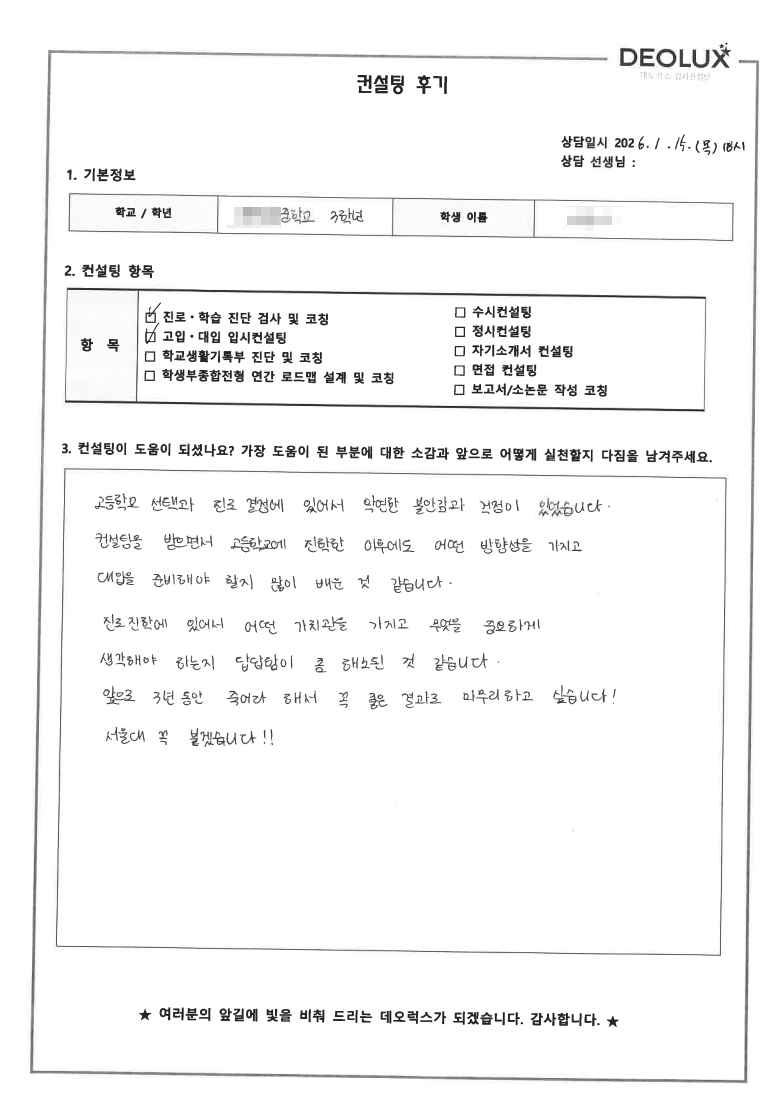 DEOLUX
데오럭스 입시컨설팅
컨설팅 후기
상담일시 2026. 1. 15. (목) 18시
상담 선생님 :
1. 기본정보
학교 / 학년 중학교 3학년 학생 이름
2. 컨설팅 항목
항 목
☑ 진로·학습 진단 검사 및 코칭
☑ 고입·대입 입시컨설팅
☐ 학교생활기록부 진단 및 코칭
☐ 학생부종합전형 연간 로드맵 설계 및 코칭
☐ 수시컨설팅
☐ 정시컨설팅
☐ 자기소개서 컨설팅
☐ 면접 컨설팅
☐ 보고서/소논문 작성 코칭
3. 컨설팅이 도움이 되셨나요? 가장 도움이 된 부분에 대한 소감과 앞으로 어떻게 실천할지 다짐을 남겨주세요.
고등학교 선택과 진로 결정에 있어서 막연한 불안감과 걱정이 있었습니다.
컨설팅을 받으면서 고등학교에 진학한 이후에도 어떤 방향성을 가지고
대입을 준비해야 할지 많이 배운 것 같습니다.
진로진학에 있어서 어떤 가치관을 가지고 무엇을 중요하게
생각해야 하는지 답답함이 좀 해소된 것 같습니다.
앞으로 3년 동안 죽어라 해서 꼭 좋은 결과로 마무리하고 싶습니다!
서울대 꼭 붙겠습니다!!
★ 여러분의 앞길에 빛을 비춰 드리는 데오럭스가 되겠습니다. 감사합니다. ★